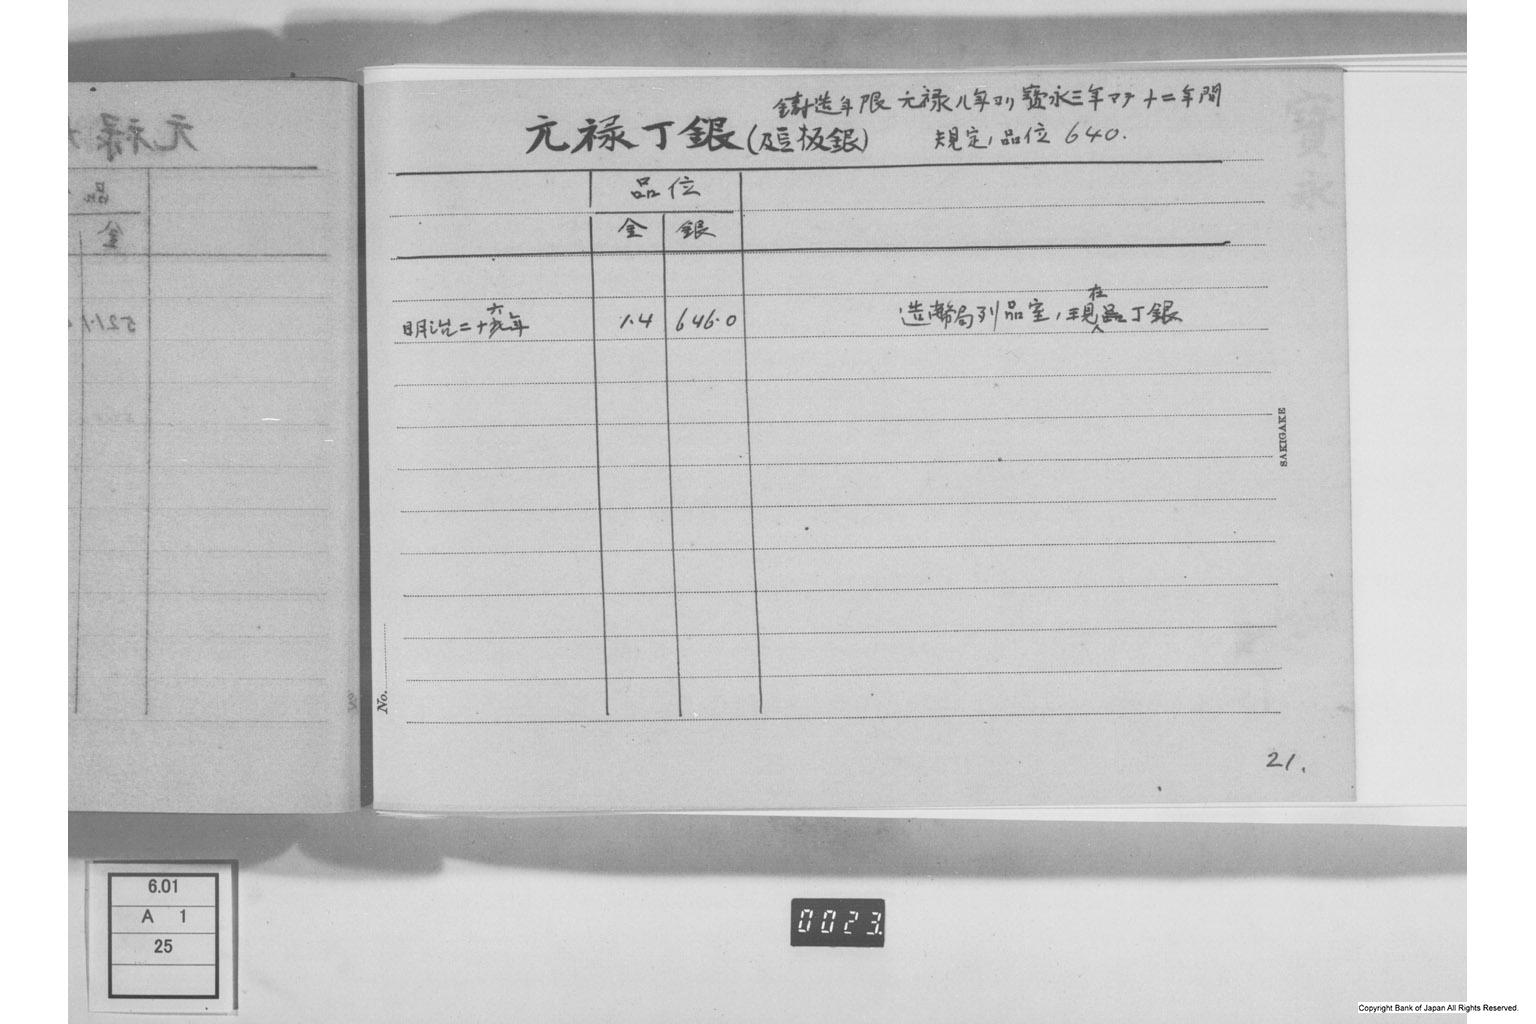 鋳造年限 元禄八年ヨリ寳永三年マデ十二年間
元禄丁銀(及豆板銀) 規定ノ品位 640.
品位
金 銀
明治二十六年 1.4 646.0 造幣局列品室ノ現在品丁銀
SAKIGAKE
No.
21.
6.01
A 1
25
0023.
Copyright Bank of Japan All Rights Reserved.